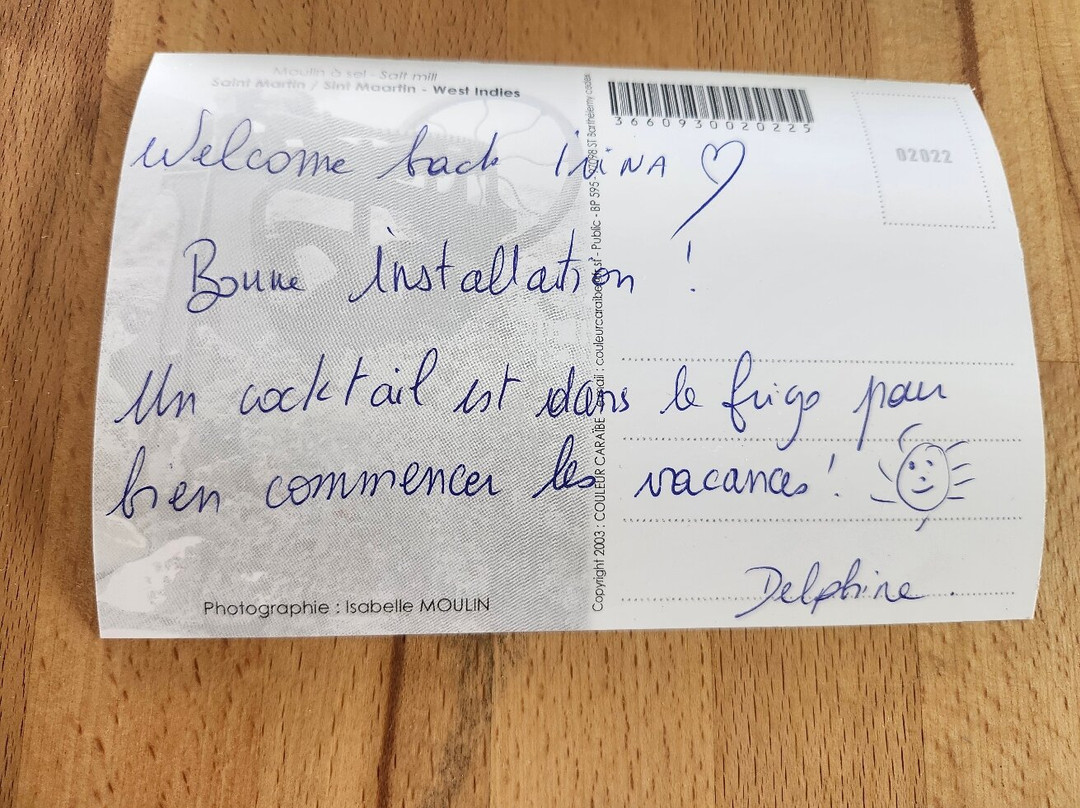 Moulin à sel - Salt mill
Saint Martin / Sint Maartin - West Indies
3660930020225
02022
Welcome back IRINA
Bonne installation !
Un cocktail est dans le frigo pour
bien commencer les vacances !
Delphine.
Photographie : Isabelle MOULIN
Copyright 2003 : COULEUR CARAÏBE - email : couleurcaraibe sf - Public - BP 595 - ST Barthélemy cedex